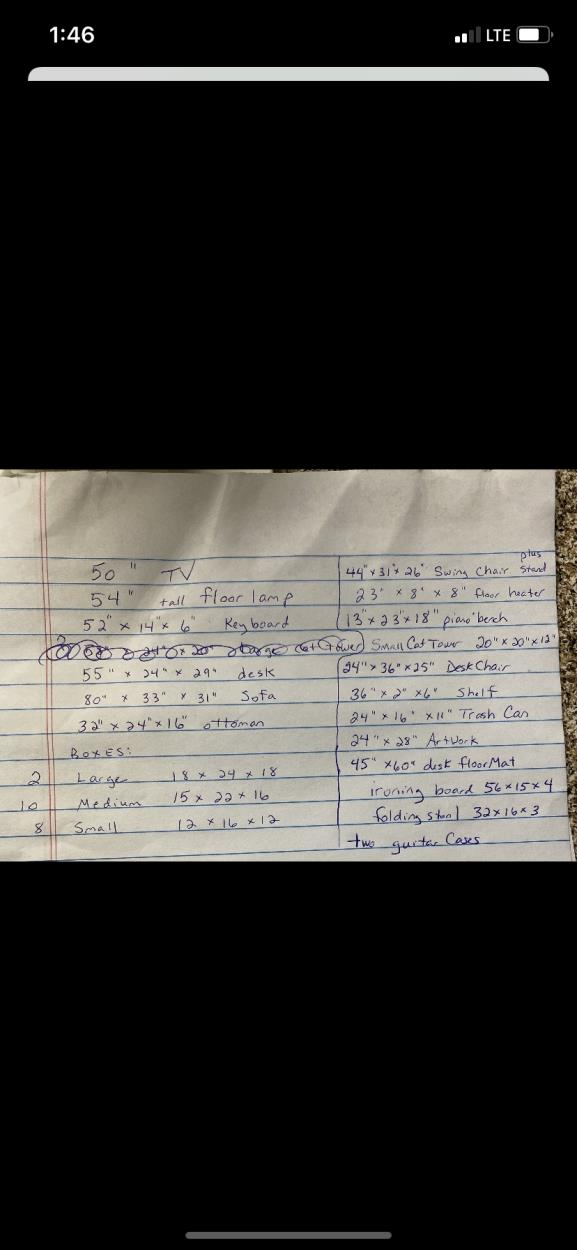 1:46
LTE
50" TV
54" tall floor lamp
52" x 14" x 6" Keyboard
55" x 24" x 29" desk
80" x 33" x 31" Sofa
32" x 24" x 16" ottoman
BOXES:
2 Large 18 x 24 x 18
10 Medium 15 x 22 x 16
8 Small 12 x 16 x 12
plus
44" x 31" x 26" Swing Chair Stand
23" x 8" x 8" floor heater
13" x 23" x 18" piano bench
Small Cat Tower 20" x 20" x 12"
24" x 36" x 25" Desk Chair
36" x 2" x 6" Shelf
24" x 16" x 11" Trash Can
24" x 28" Artwork
45" x 60" desk floor Mat
ironing board 56 x 15 x 4
folding stool 32 x 16 x 3
two guitar Cases